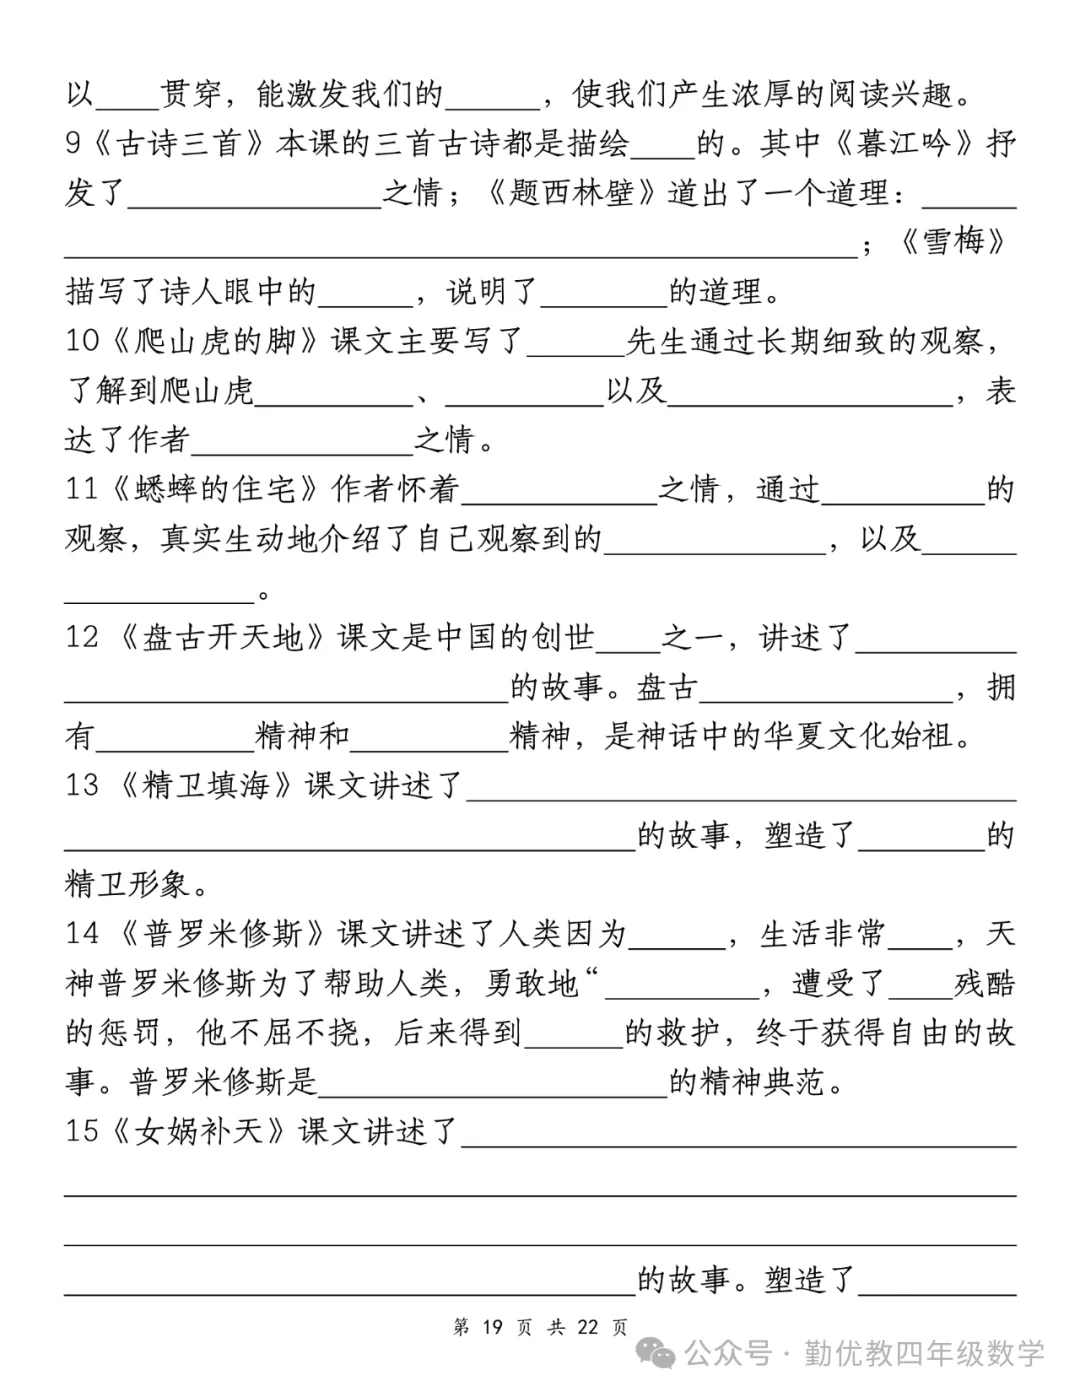 以____贯穿，能激发我们的______，使我们产生浓厚的阅读兴趣。
9《古诗三首》本课的三首古诗都是描绘____的。其中《暮江吟》抒
发了________________之情；《题西林壁》道出了一个道理：______
__________________________________________________；《雪梅》
描写了诗人眼中的______，说明了________的道理。
10《爬山虎的脚》课文主要写了______先生通过长期细致的观察，
了解到爬山虎__________、__________以及__________________，表
达了作者______________之情。
11《蟋蟀的住宅》作者怀着____________之情，通过__________的
观察，真实生动地介绍了自己观察到的______________，以及______
____________。
12 《盘古开天地》课文是中国的创世____之一，讲述了__________
____________________________的故事。盘古________________，拥
有__________精神和__________精神，是神话中的华夏文化始祖。
13 《精卫填海》课文讲述了__________________________________
____________________________________的故事，塑造了________的
精卫形象。
14 《普罗米修斯》课文讲述了人类因为______，生活非常____，天
神普罗米修斯为了帮助人类，勇敢地“__________，遭受了____残酷
的惩罚，他不屈不挠，后来得到______的救护，终于获得自由的故
事。普罗米修斯是______________________的精神典范。
15《女娲补天》课文讲述了___________________________________
____________________________________________________________
____________________________________________________________
____________________________________的故事。塑造了__________
第 19 页 共 22 页
公众号 · 勤优教四年级数学